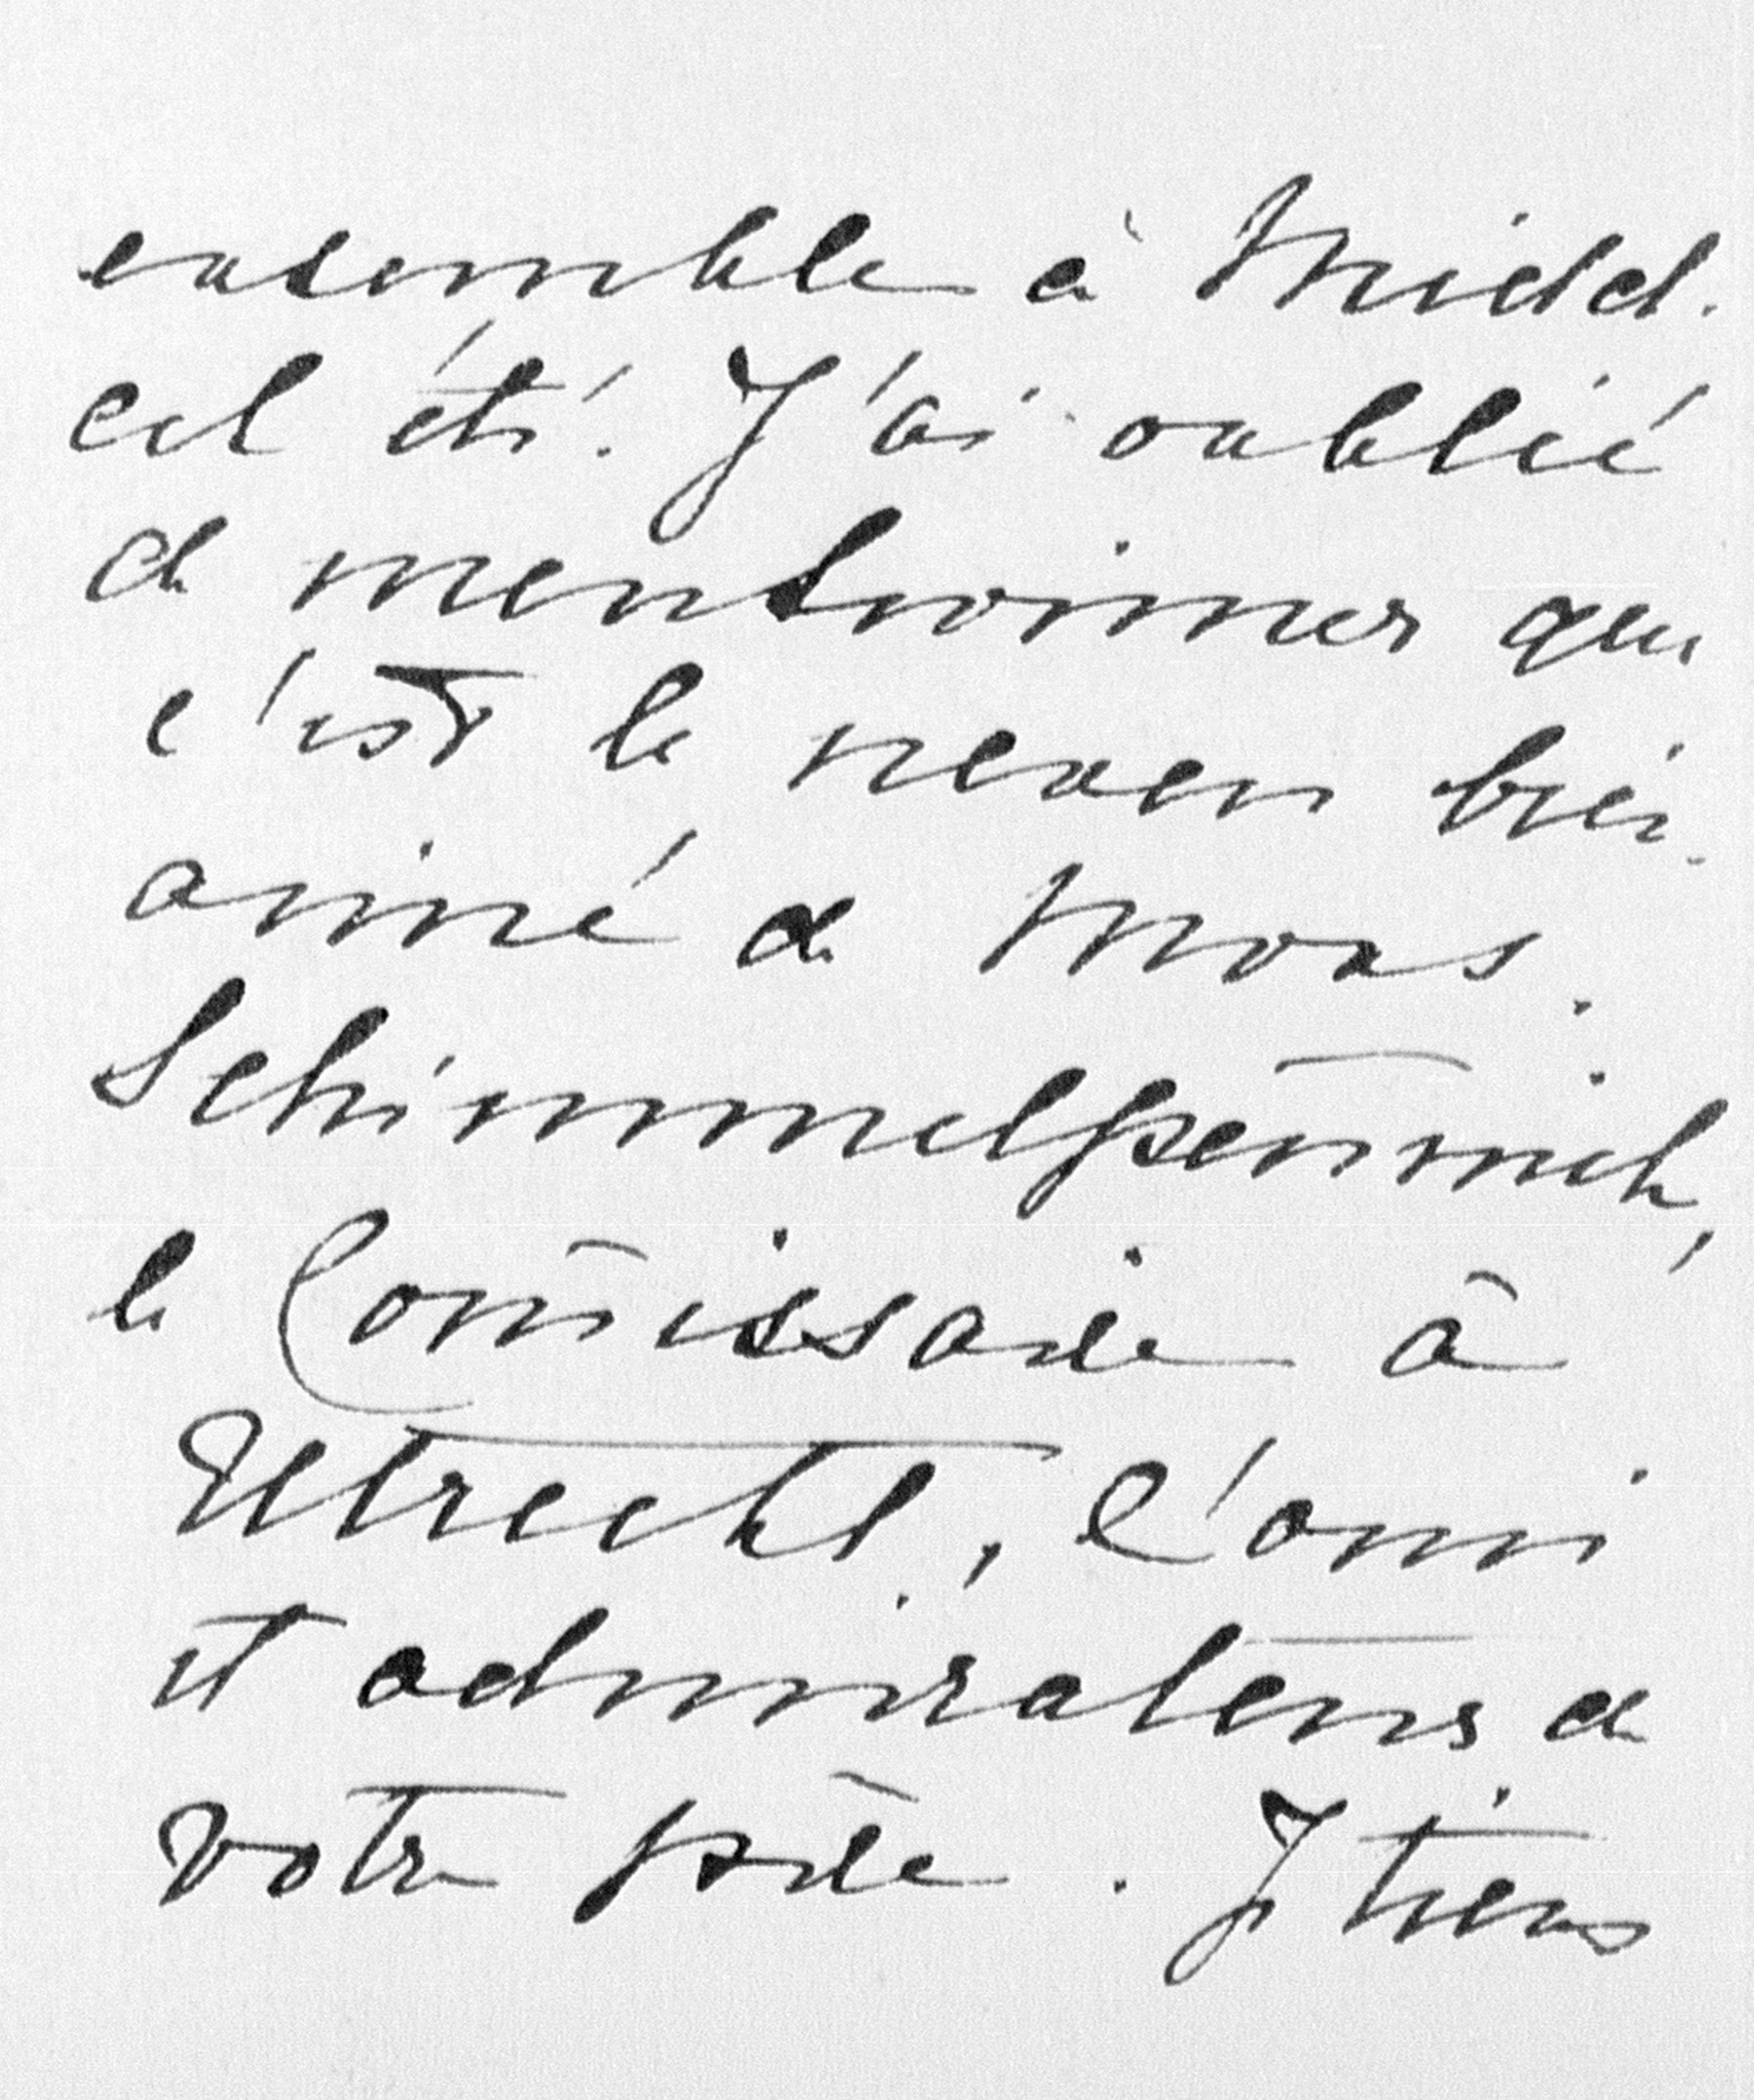 ensemble à Midd.
cet été. J'ai oublié
de mentionner que
c'est le neveu bien
aimé de Mons.
Schimmelpen̄ninck,
le Com̄issaire à
Utrecht, l'ami
et admirateur de
votre père. Je tiens